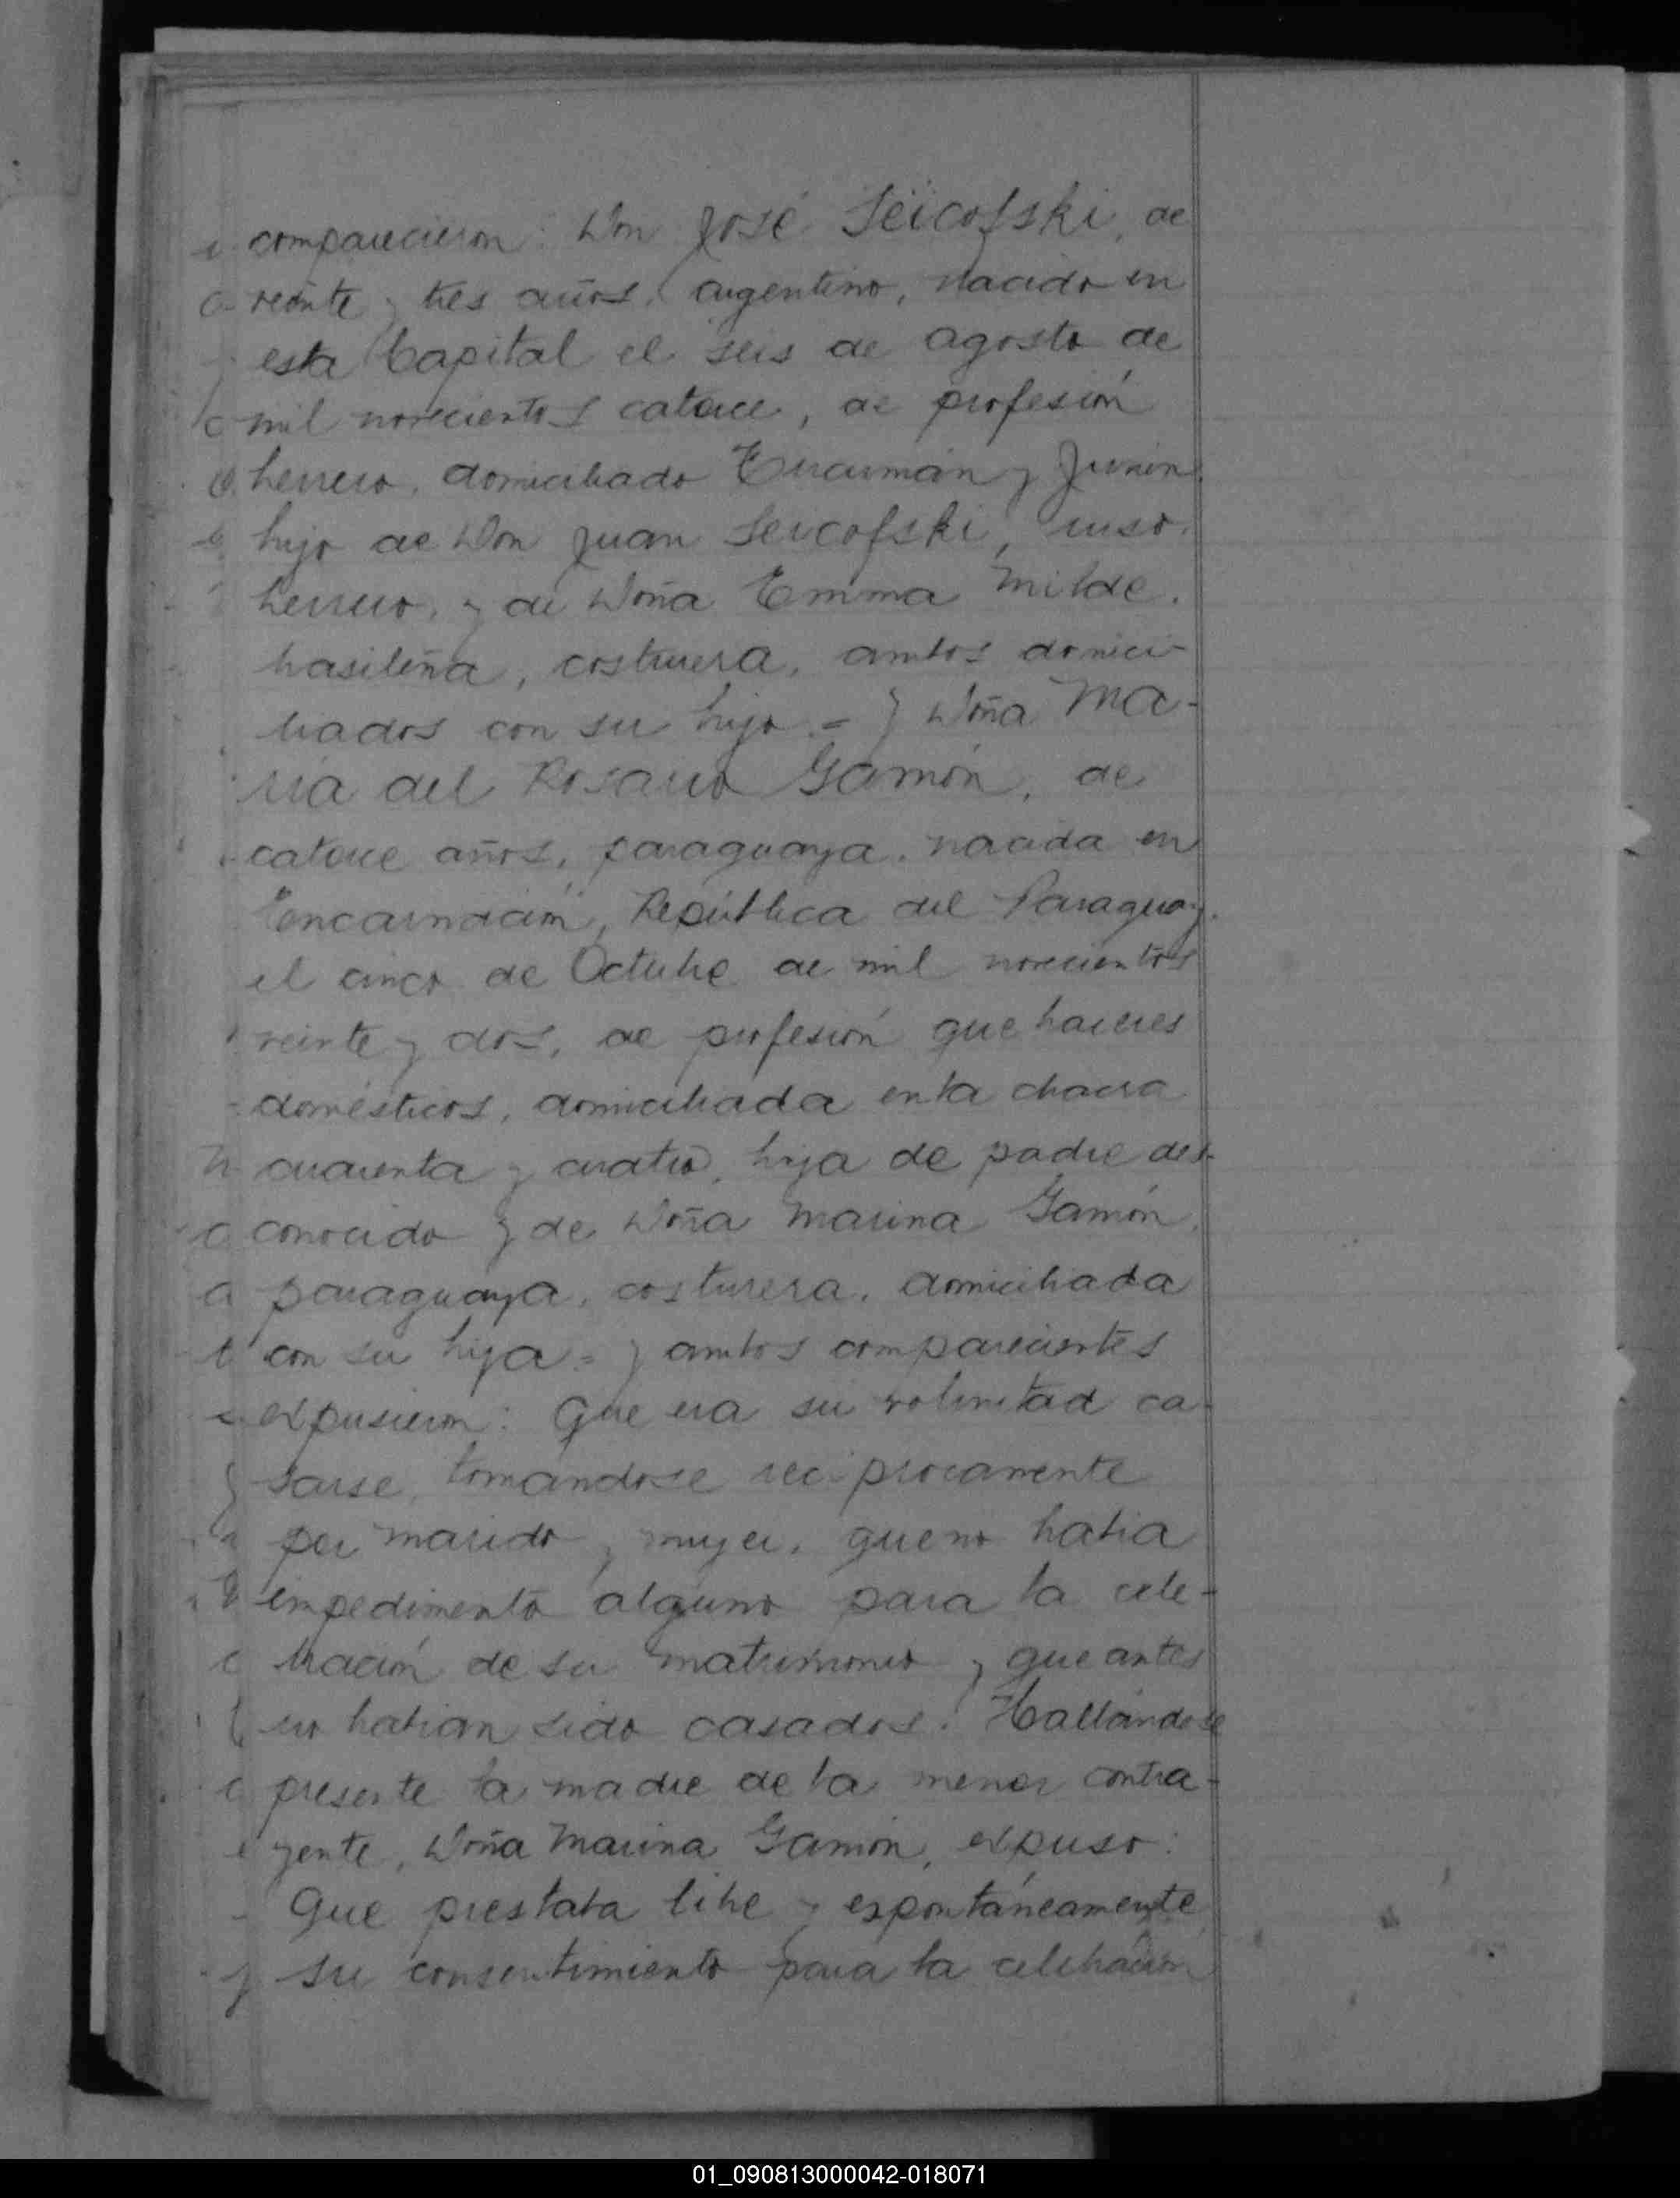 comparecieron: Don José Seicofski, de
veinte y tres años, argentino, nacido en
esta Capital el seis de agosto de
mil novecientos catorce, de profesión
herrero, domiciliado Tucumán y Junín,
hijo de Don Juan Seicofski, ruso,
herrero, y de Doña Emma Milde,
brasileña, costurera, ambos domici-
liados con su hijo.= y Doña Ma-
ría del Rosario Gamón, de
catorce años, paraguaya, nacida en
Encarnación, República del Paraguay,
el cinco de Octubre de mil novecientos
veinte y dos, de profesión que haceres
domésticos, domiciliada en la chacra
cuarenta y cuatro, hija de padre des-
conocido y de Doña Marina Gamón,
paraguaya, costurera, domiciliada
con su hija.= y ambos comparecientes
expusieron: Que era su voluntad ca-
sarse, tomándose reciprocamente
por marido y mujer, que no habia
impedimento alguno para la cele-
bración de su matrimonio y que antes
no habian sido casados. Hallándose
presente la madre de la menor contra-
yente, Doña Marina Gamón, expuso:
Que prestaba libre y espontáneamente
su consentimiento para la celebración
01_090813000042-018071